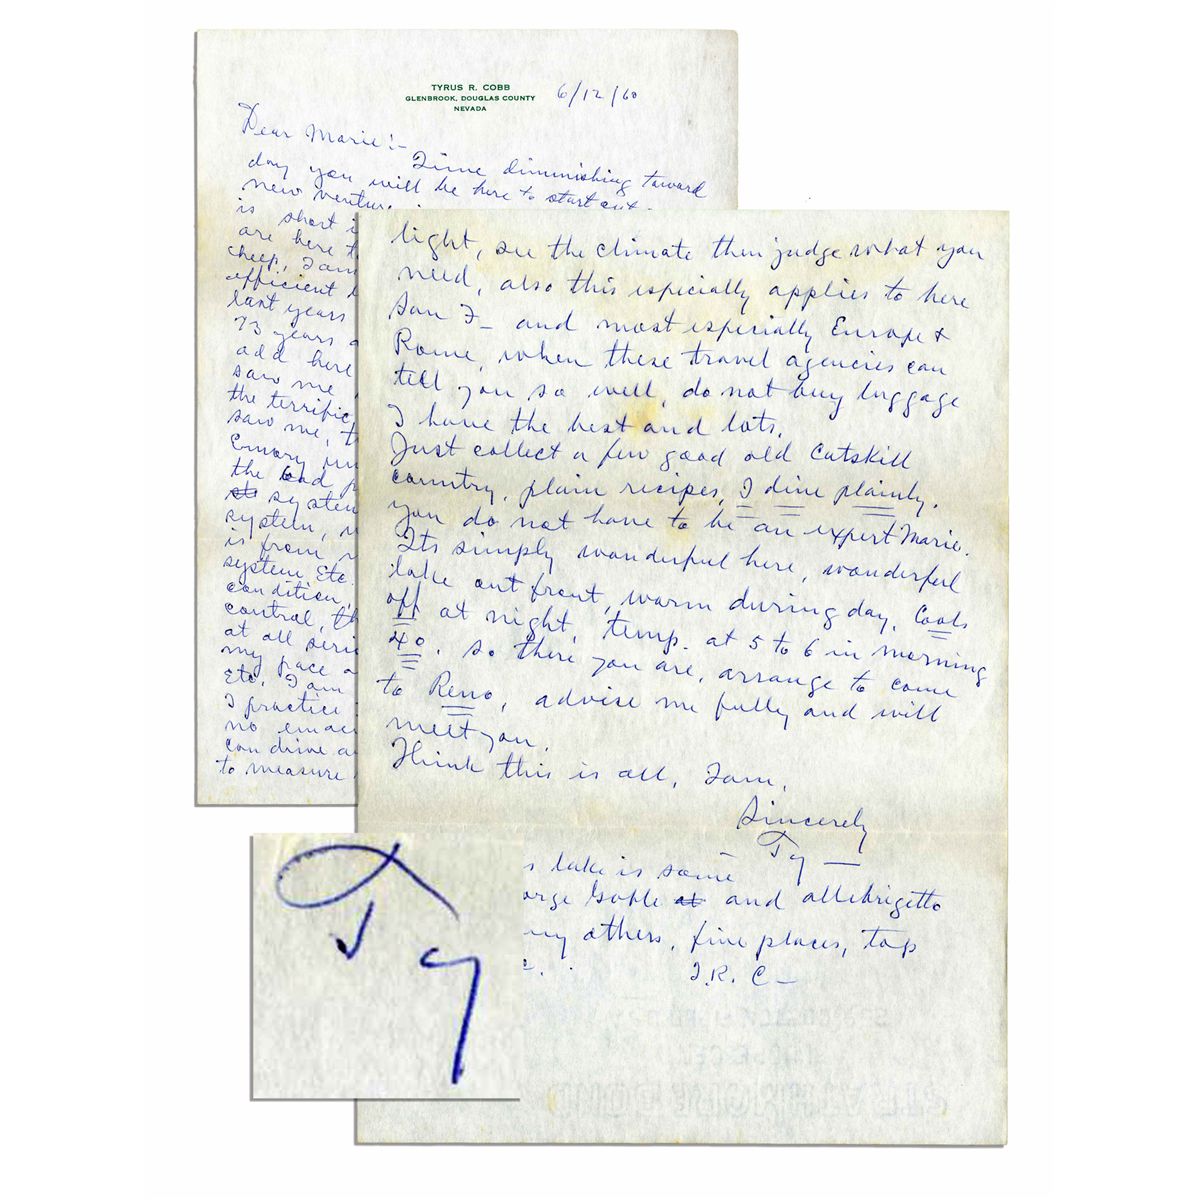 TYRUS R. COBB
GLENBROOK, DOUGLAS COUNTY
NEVADA
6/12/60
Dear Marie:-
Time diminishing toward
day you will be here to start out
new
is short
are here
cheep, I am
efficient
last years
73 years
add here
saw me
the terrific
saw me,
Emory
the bad
system
system,
is from
system Etc.
condition,
control, th
at all
my pace
Etc. I am
I practice
no
can drive
to measure
light, see the climate then judge what you
need, also this especially applies to here
San F- and most especially Europe &
Rome, when these travel agencies can
tell you so well, do not buy luggage
I have the best and lots.
Just collect a few good old Catskill
country, plain recipes, I dine plainly.
you do not have to be an expert Marie.
Its simply wonderful here, wonderful
lake out front, warm during day, Cools
off at night, temp. at 5 to 6 in morning
40. so there you are, arrange to come
to Reno, advise me fully and will
meet you.
Think this is all, I am,
Sincerely
Ty —
lake is same
and
others, fine places, top
T.R.C-
Ty